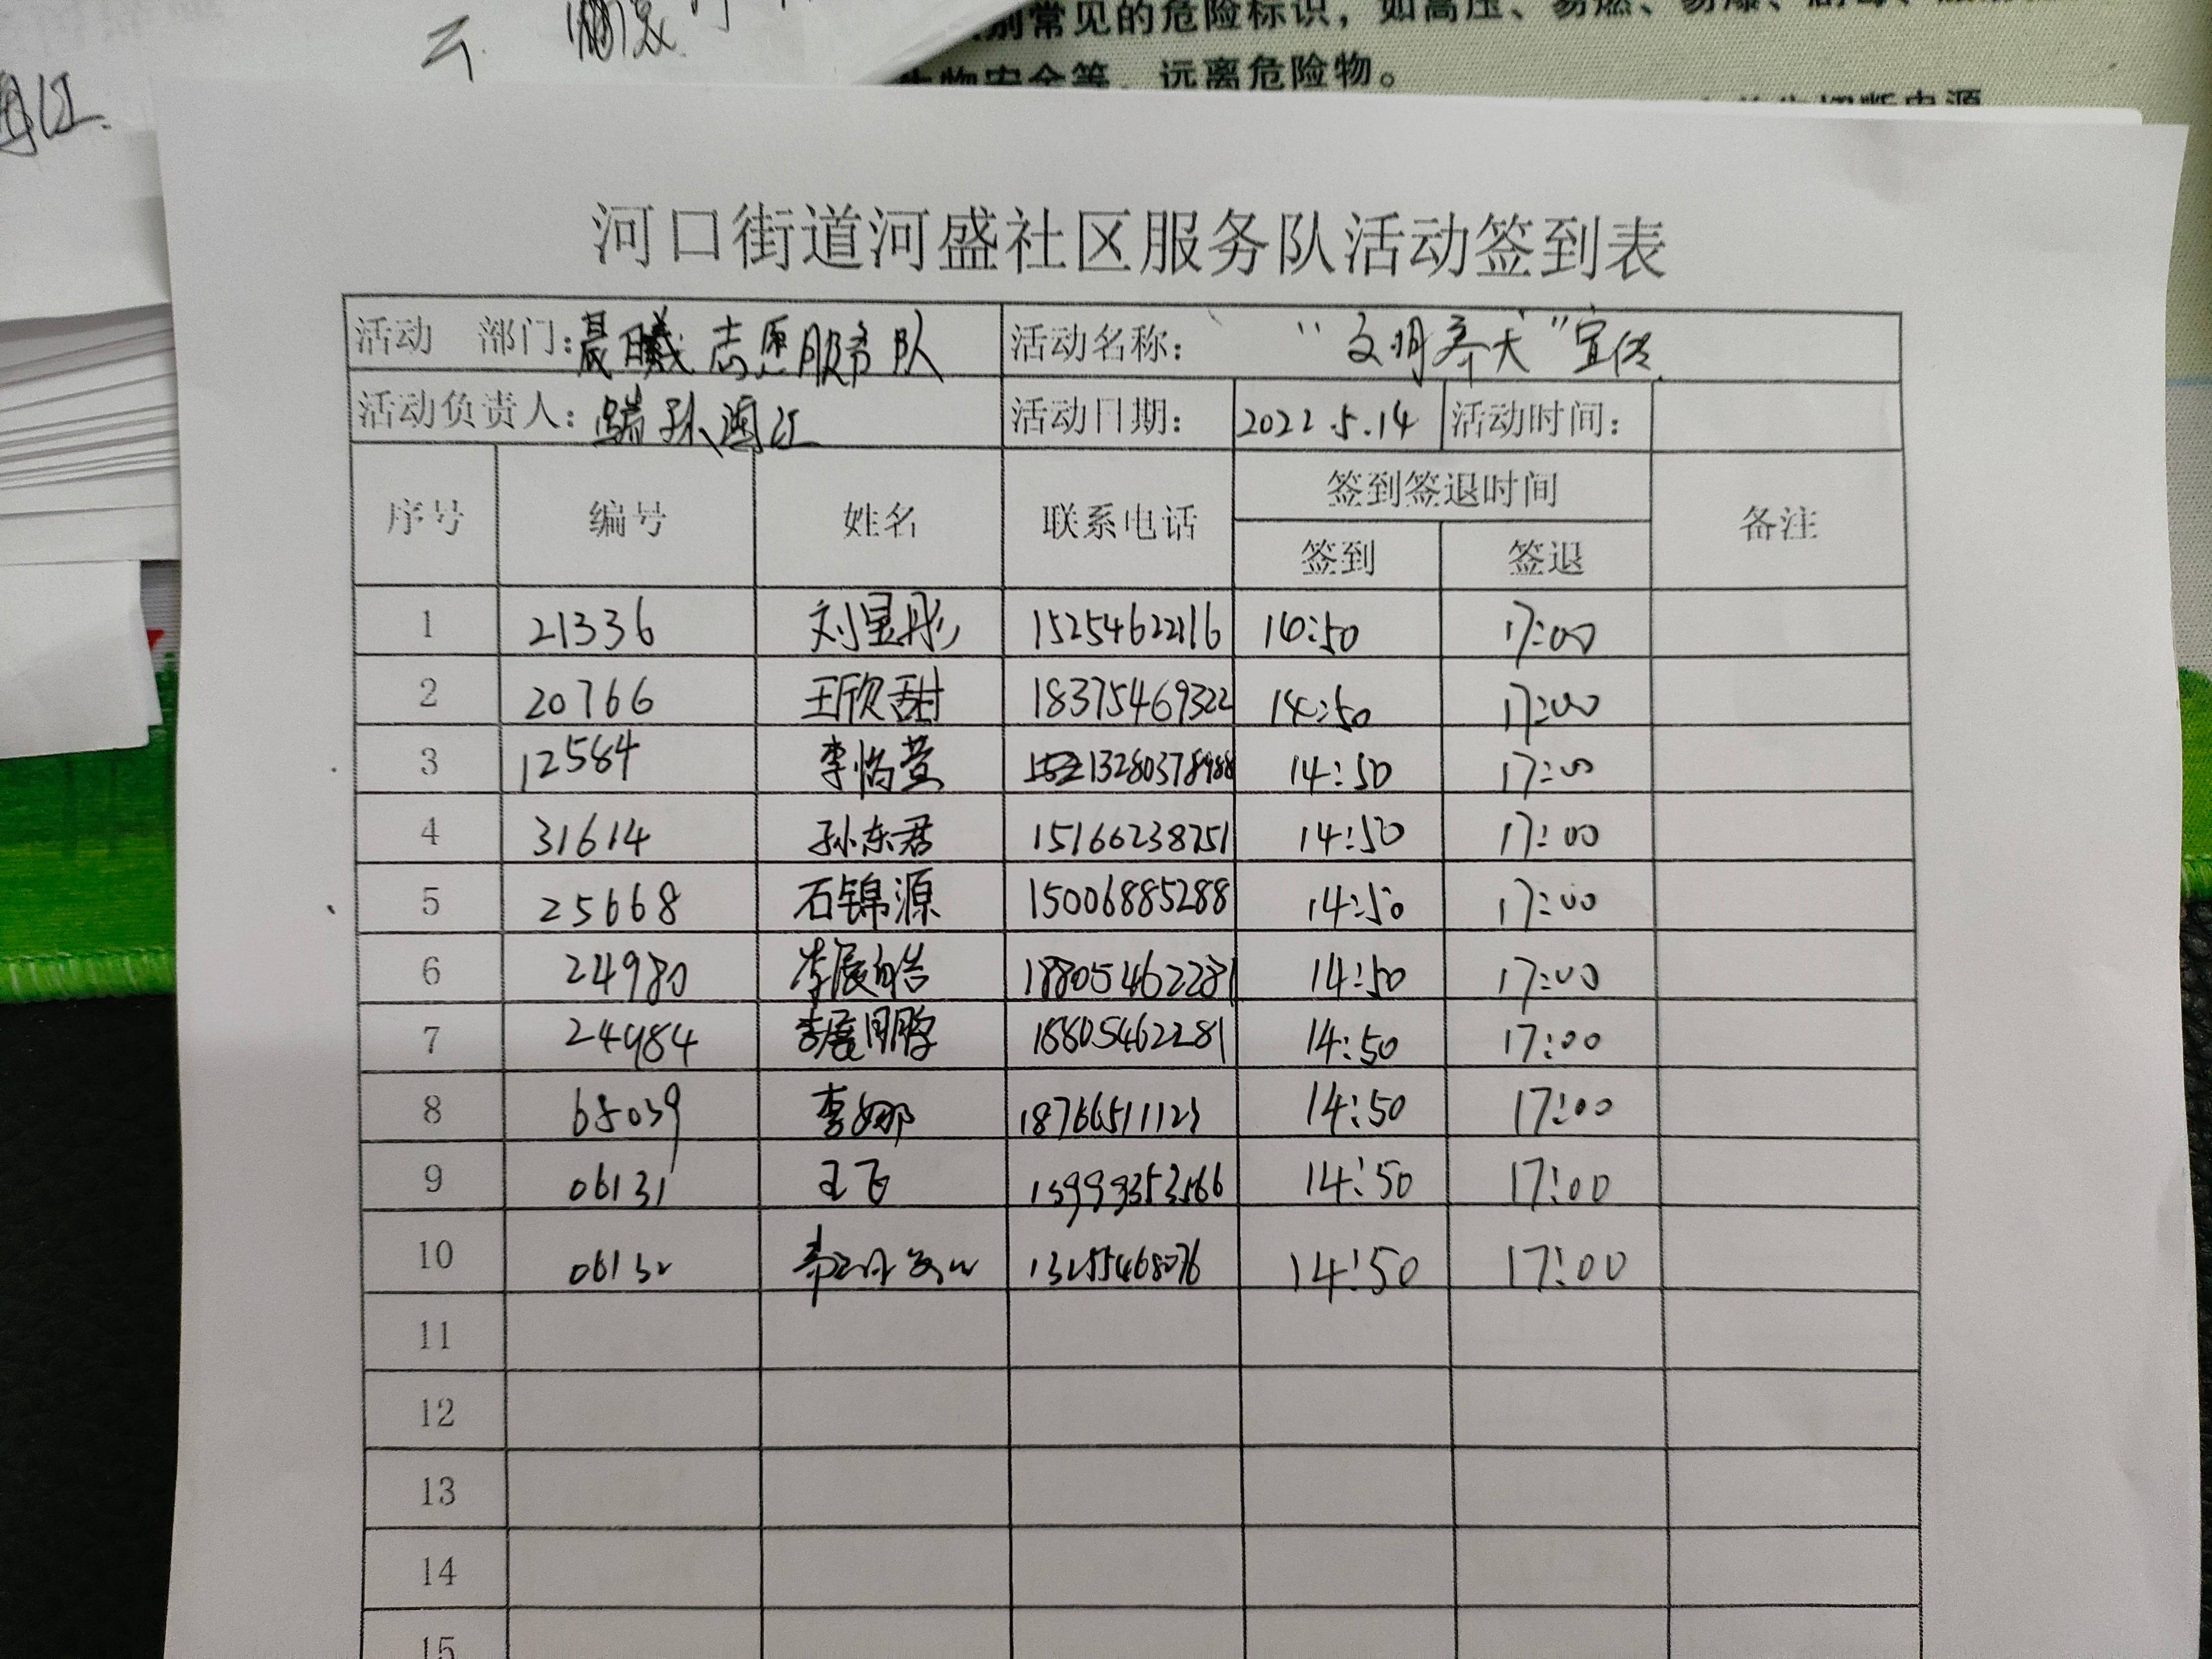 别常见的危险标识，如高压、易燃、易爆、
生物安全等，远离危险物。
切断电源
河口街道河盛社区服务队活动签到表
活动 部门：晨曦志愿服务队 活动名称： “文明养犬”宣传
活动负责人： 孙海江 活动日期： 2022.5.14 活动时间：
序号 编号 姓名 联系电话 签到签退时间 备注
签到 签退
1 21336 刘昱彤 15254622116 14:50 17:00
2 20766 王欣甜 18375469322 14:50 17:00
3 12584 李怡萱 13280378988 14:50 17:00
4 31614 孙东君 15166238751 14:50 17:00
5 25668 石锦源 15006885288 14:50 17:00
6 24980 李宸皓 18805462281 14:50 17:00
7 24984 18805462281 14:50 17:00
8 65039 李娜 18766511123 14:50 17:00
9 06131 王飞 14:50 17:00
10 06132 14:50 17:00
11
12
13
14
15